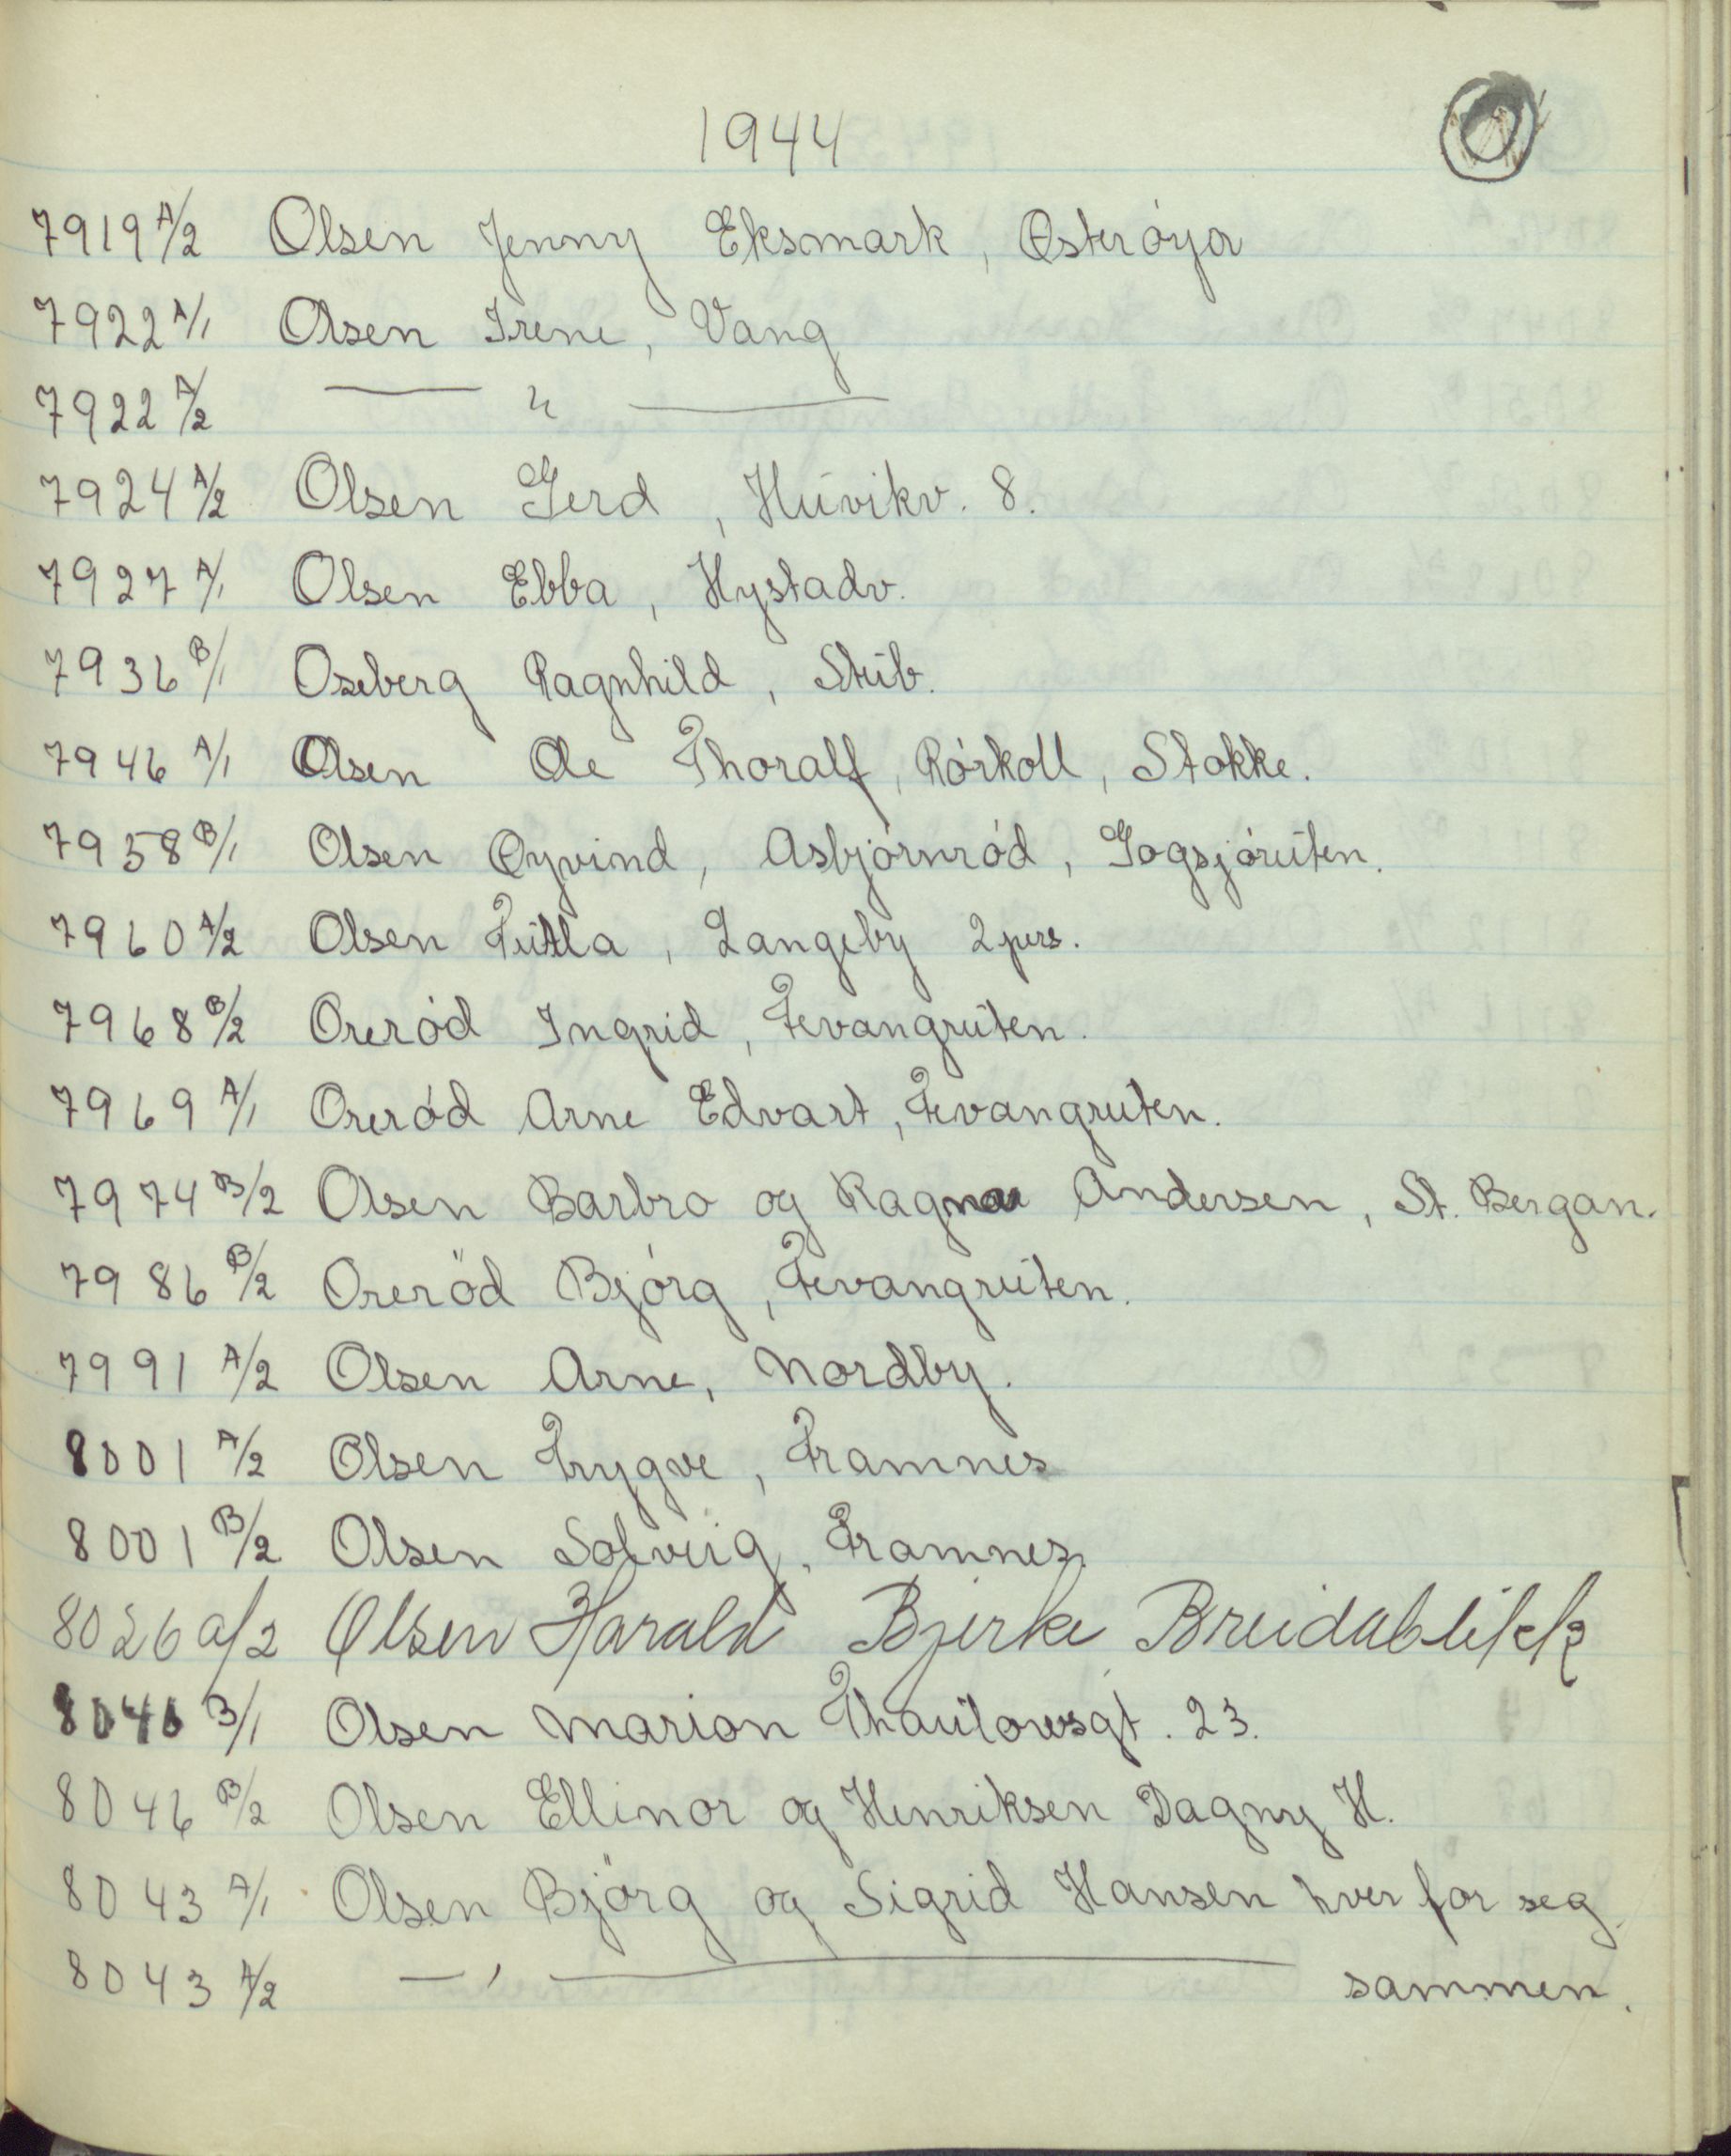 1944
O
7919 A/2 Olsen Jenny Eksmark, Østerøya
7922 A/1 Olsen Irene, Vang
7922 A/2 — " —
7924 A/2 Olsen Gerd, Huvikv. 8.
7927 A/1 Olsen Ebba, Hystadv.
7936 B/1 Oseberg Ragnhild, Stub.
7946 A/1 Olsen Ole Thoralf, Rørkoll, Stokke.
7958 B/1 Olsen Øyvind, Asbjørnrød, Gogsjøruten.
7960 A/2 Olsen Tulla, Langeby 2 pers.
7968 B/2 Orerød Ingrid, Fevangruten.
7969 A/1 Orerød Arne Edvart, Fevangruten.
7974 B/2 Olsen Barbro og Ragnar Andersen, St. Bergan.
7986 B/2 Oreröd Bjørg, Fevangruten.
7991 A/2 Olsen Arne, Nordby.
8001 A/2 Olsen Trygve, Framnes
8001 B/2 Olsen Solveig, Framnes.
8026 a/2 Olsen Harald Bjerke Breidablikk
8046 B/1 Olsen Marion Thaulowsgt. 23.
8046 B/2 Olsen Ellinor og Henriksen Dagny H.
8043 A/1 Olsen Björg og Sigrid Hansen hver for seg.
8043 A/2 — ' — sammen.